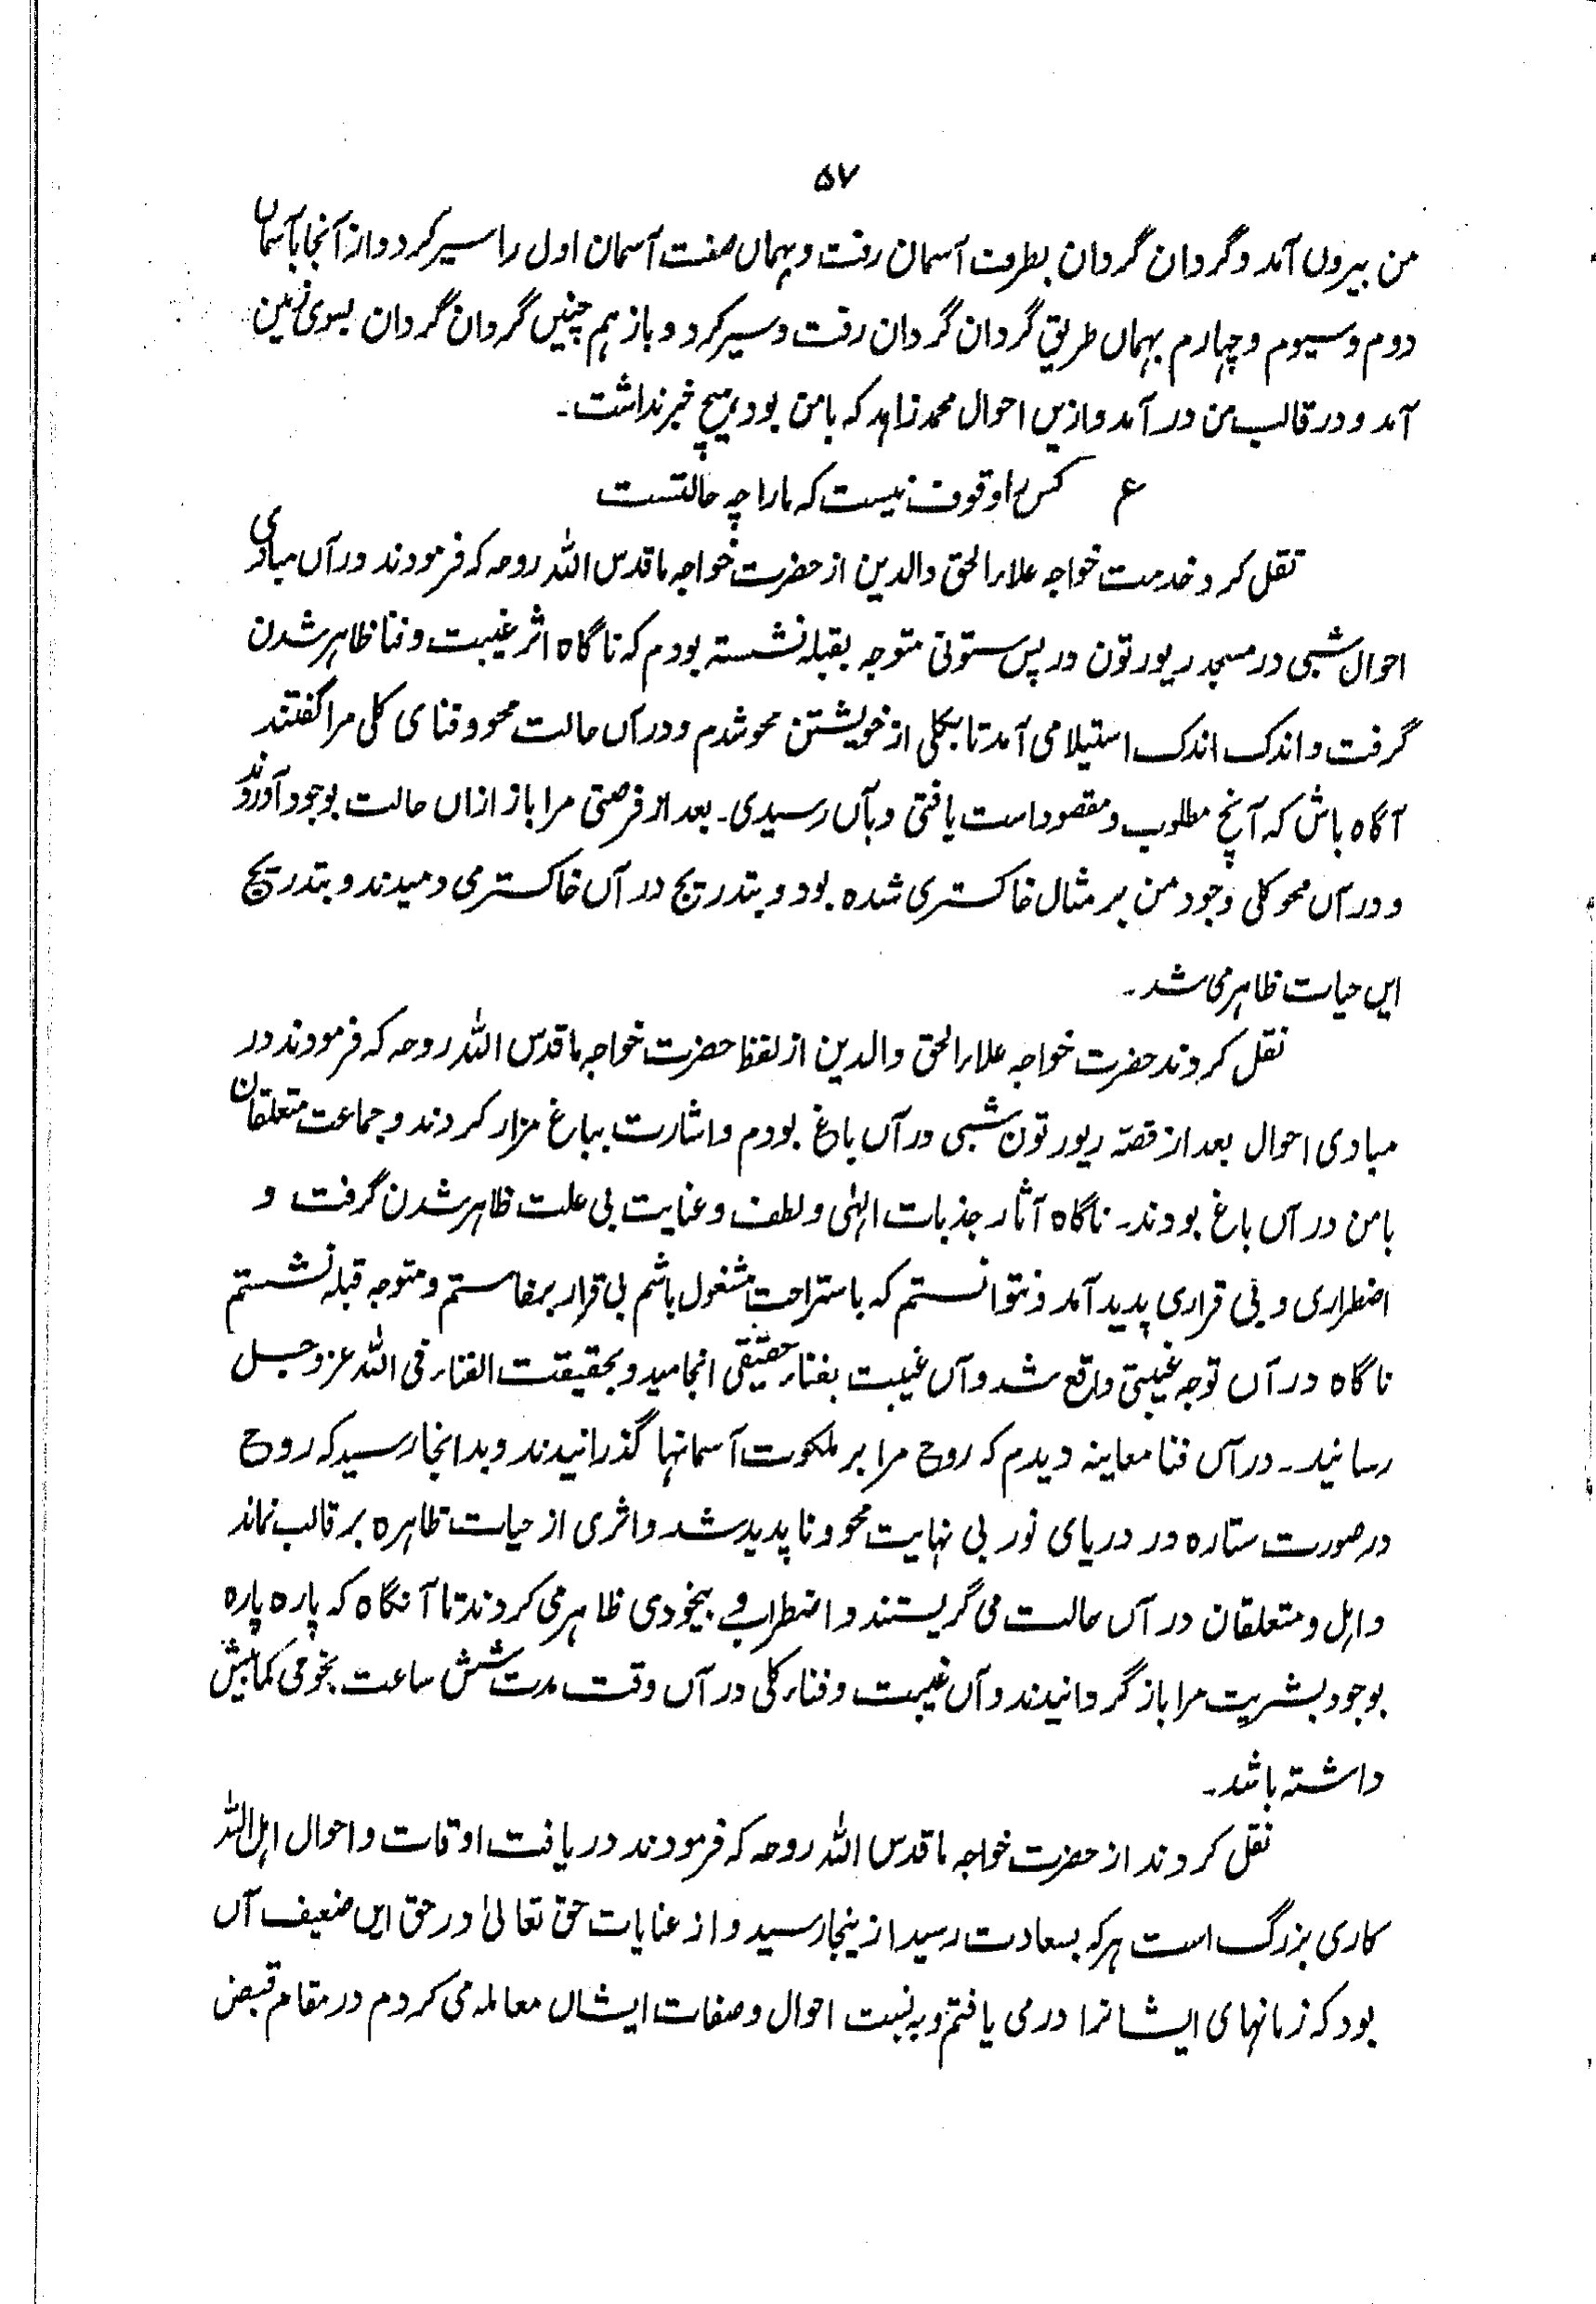 ۵۷
من بیروں آمد وگردان گردان بطرف آسمان رفت وبہماں صفت آسمان اول را سیر کرد واز آنجا بآسماں
دوم و سیوم و چہارم بہماں طریق گردان گردان رفت و سیر کرد و باز ہم چنیں گردان گردان بسوی زمین
آمد و در قالب من در آمد وازیں احوال محمد زاہد کہ بامن بود ہیچ خبر نداشت۔
ع کس را وقوف نیست کہ مارا چہ حالتست
نقل کرد خدمت خواجہ علاء الحق والدین از حضرت خواجہ ما قدس اللہ روحہ کہ فرمودند در آں مبادی
احوال شبی در مسجد ریورتون در پس ستونی متوجہ بقبلہ نشستہ بودم کہ ناگاہ اثر غیبت و فنا ظاہر شدن
گرفت و اندک اندک استیلا می آمد تا بکلی از خویشتن محو شدم و در آں حالت محو و فنای کلی مرا گفتند
آگاہ باش کہ آنچ مطلوب و مقصود است یافتی و بآں رسیدی۔ بعد از فرصتی مرا باز ازاں حالت بوجود آوردند
و در آں محو کلی وجود من بر مثال خاکستری شدہ بود و بتدریج در آں خاکستر می دمیدند و بتدریج
ایں حیات ظاہر می شد۔
نقل کردند حضرت خواجہ علاء الحق والدین از لفظ حضرت خواجہ ما قدس اللہ روحہ کہ فرمودند در
مبادی احوال بعد از قصۂ ریورتون شبی در آں باغ بودم و اشارت بباغ مزار کردند و جماعت متعلقان
بامن در آں باغ بودند۔ ناگاہ آثار جذبات الہٰی و لطف و عنایت بی علت ظاہر شدن گرفت و
اضطراری و بی قراری پدید آمد و نتوانستم کہ باستراحت مشغول باشم بی قرار برخاستم و متوجہ قبلہ نشستم
ناگاہ در آں توجہ غیبتی واقع شد و آں غیبت بفناء حقیقی انجامید و بحقیقت الفناء فی اللہ عز و جل
رسانید۔ در آں فنا معاینہ دیدم کہ روح مرا بر ملکوت آسمانہا گذرانیدند و بدانجا رسید کہ روح
در صورت ستارہ در دریای نور بی نہایت محو و ناپدید شد و اثری از حیات ظاہرہ بر قالب نماند
و اہل و متعلقان در آں حالت می گریستند و اضطراب و بیخودی ظاہر می کردند تا آنگاہ کہ پارہ پارہ
بوجود بشریت مرا باز گردانیدند و آں غیبت و فناء کلی در آں وقت مدت شش ساعت نجومی کمابیش
داشتہ باشد۔
نقل کردند از حضرت خواجہ ما قدس اللہ روحہ کہ فرمودند دریافت اوقات و احوال اہل اللہ
کاری بزرگ است ہر کہ بسعادت رسید ازینجا رسید و از عنایات حق تعالیٰ در حق ایں ضعیف آں
بود کہ زمانہای ایشانرا در می یافتم و بہ نسبت احوال و صفات ایشاں معاملہ می کردم در مقام قبض